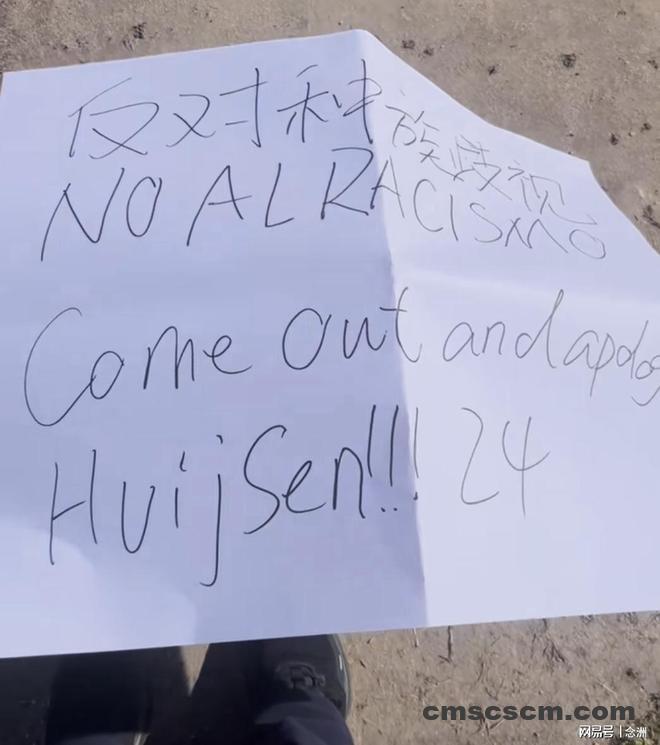 反对种族歧视
NO AL RACISMO
Come out and apolog
Huijsen!!! 24
cmscscm.com
网易号 | 念洲